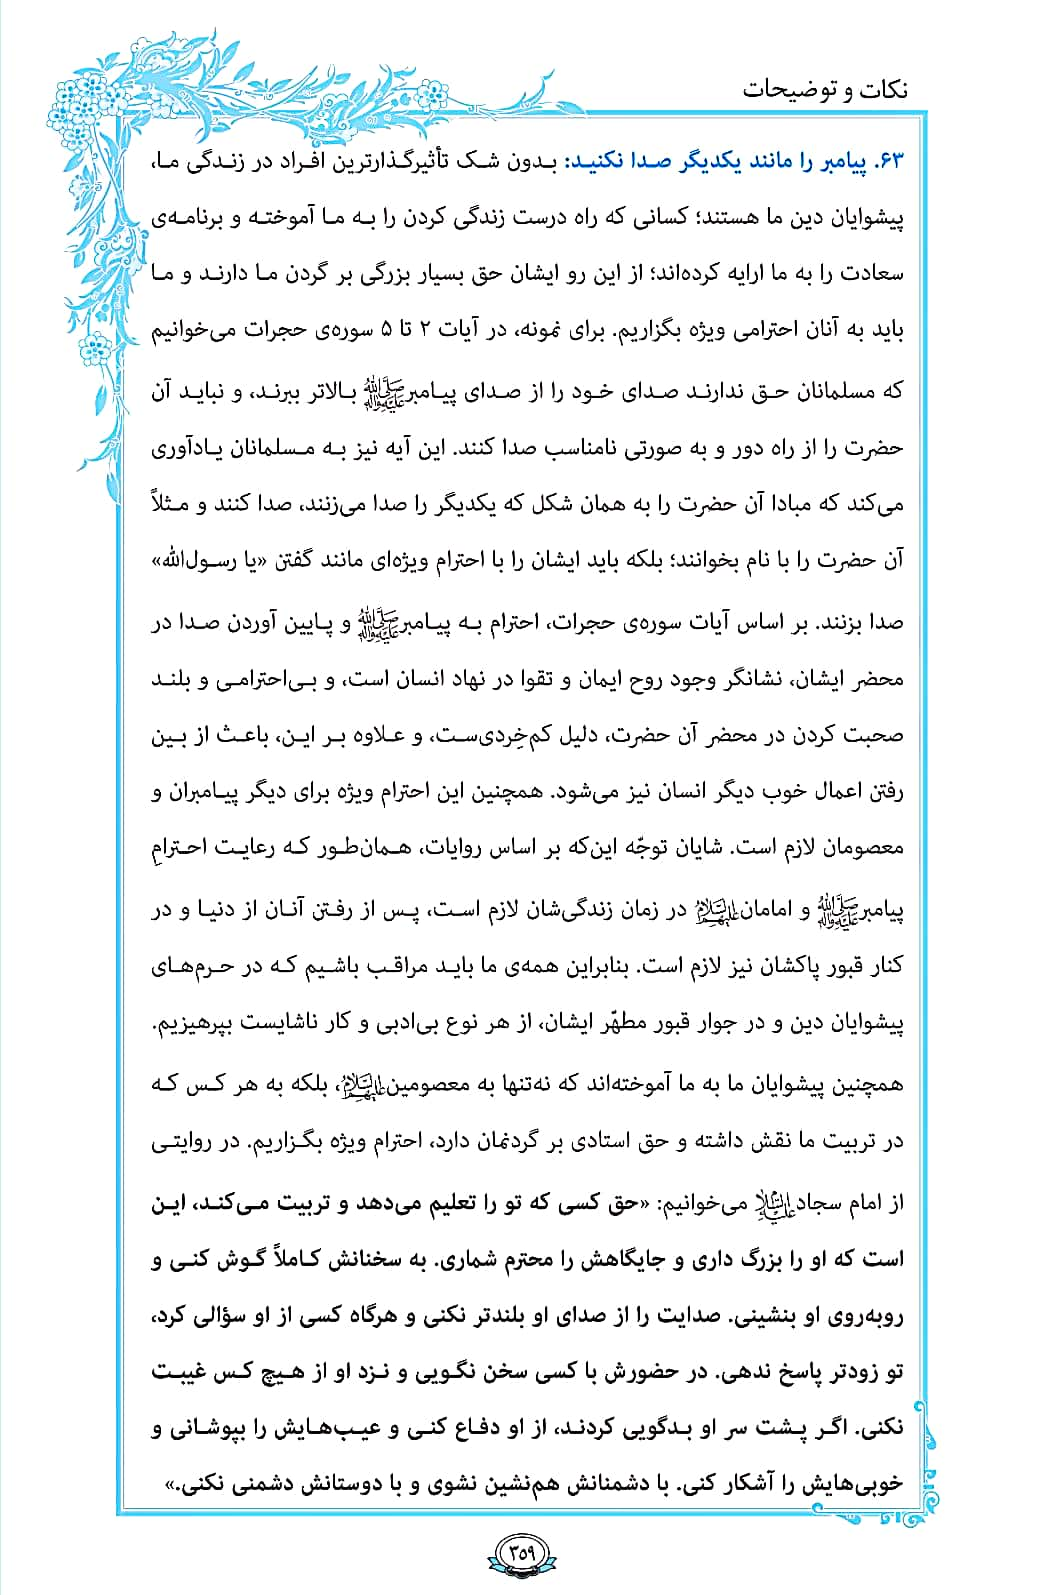 نکات و توضیحات
۶۳. پیامبر را مانند یکدیگر صدا نکنید: بدون شک تأثیرگذارترین افراد در زندگی ما،
پیشوایان دین ما هستند؛ کسانی که راه درست زندگی کردن را به ما آموخته و برنامه‌ی
سعادت را به ما ارایه کرده‌اند؛ از این رو ایشان حق بسیار بزرگی بر گردن ما دارند و ما
باید به آنان احترامی ویژه بگزاریم. برای نمونه، در آیات ۲ تا ۵ سوره‌ی حجرات می‌خوانیم
که مسلمانان حق ندارند صدای خود را از صدای پیامبرﷺ بالاتر ببرند، و نباید آن
حضرت را از راه دور و به صورتی نامناسب صدا کنند. این آیه نیز به مسلمانان یادآوری
می‌کند که مبادا آن حضرت را به همان شکل که یکدیگر را صدا می‌زنند، صدا کنند و مثلاً
آن حضرت را با نام بخوانند؛ بلکه باید ایشان را با احترام ویژه‌ای مانند گفتن «یا رسول‌الله»
صدا بزنند. بر اساس آیات سوره‌ی حجرات، احترام به پیامبرﷺ و پایین آوردن صدا در
محضر ایشان، نشانگر وجود روح ایمان و تقوا در نهاد انسان است، و بی‌احترامی و بلند
صحبت کردن در محضر آن حضرت، دلیل کم‌خِردی‌ست، و علاوه بر این، باعث از بین
رفتن اعمال خوب دیگر انسان نیز می‌شود. همچنین این احترام ویژه برای دیگر پیامبران و
معصومان لازم است. شایان توجّه این‌که بر اساس روایات، همان‌طور که رعایت احترامِ
پیامبرﷺ و امامان علیهم السلام در زمان زندگی‌شان لازم است، پس از رفتن آنان از دنیا و در
کنار قبور پاکشان نیز لازم است. بنابراین همه‌ی ما باید مراقب باشیم که در حرم‌های
پیشوایان دین و در جوار قبور مطهّر ایشان، از هر نوع بی‌ادبی و کار ناشایست بپرهیزیم.
همچنین پیشوایان ما به ما آموخته‌اند که نه‌تنها به معصومین علیهم السلام، بلکه به هر کس که
در تربیت ما نقش داشته و حق استادی بر گردنمان دارد، احترام ویژه بگزاریم. در روایتی
از امام سجاد علیه السلام می‌خوانیم: «حق کسی که تو را تعلیم می‌دهد و تربیت می‌کند، این
است که او را بزرگ داری و جایگاهش را محترم شماری. به سخنانش کاملاً گوش کنی و
روبه‌روی او بنشینی. صدایت را از صدای او بلندتر نکنی و هرگاه کسی از او سؤالی کرد،
تو زودتر پاسخ ندهی. در حضورش با کسی سخن نگویی و نزد او از هیچ کس غیبت
نکنی. اگر پشت سر او بدگویی کردند، از او دفاع کنی و عیب‌هایش را بپوشانی و
خوبی‌هایش را آشکار کنی. با دشمنانش هم‌نشین نشوی و با دوستانش دشمنی نکنی.»
۳۵۹